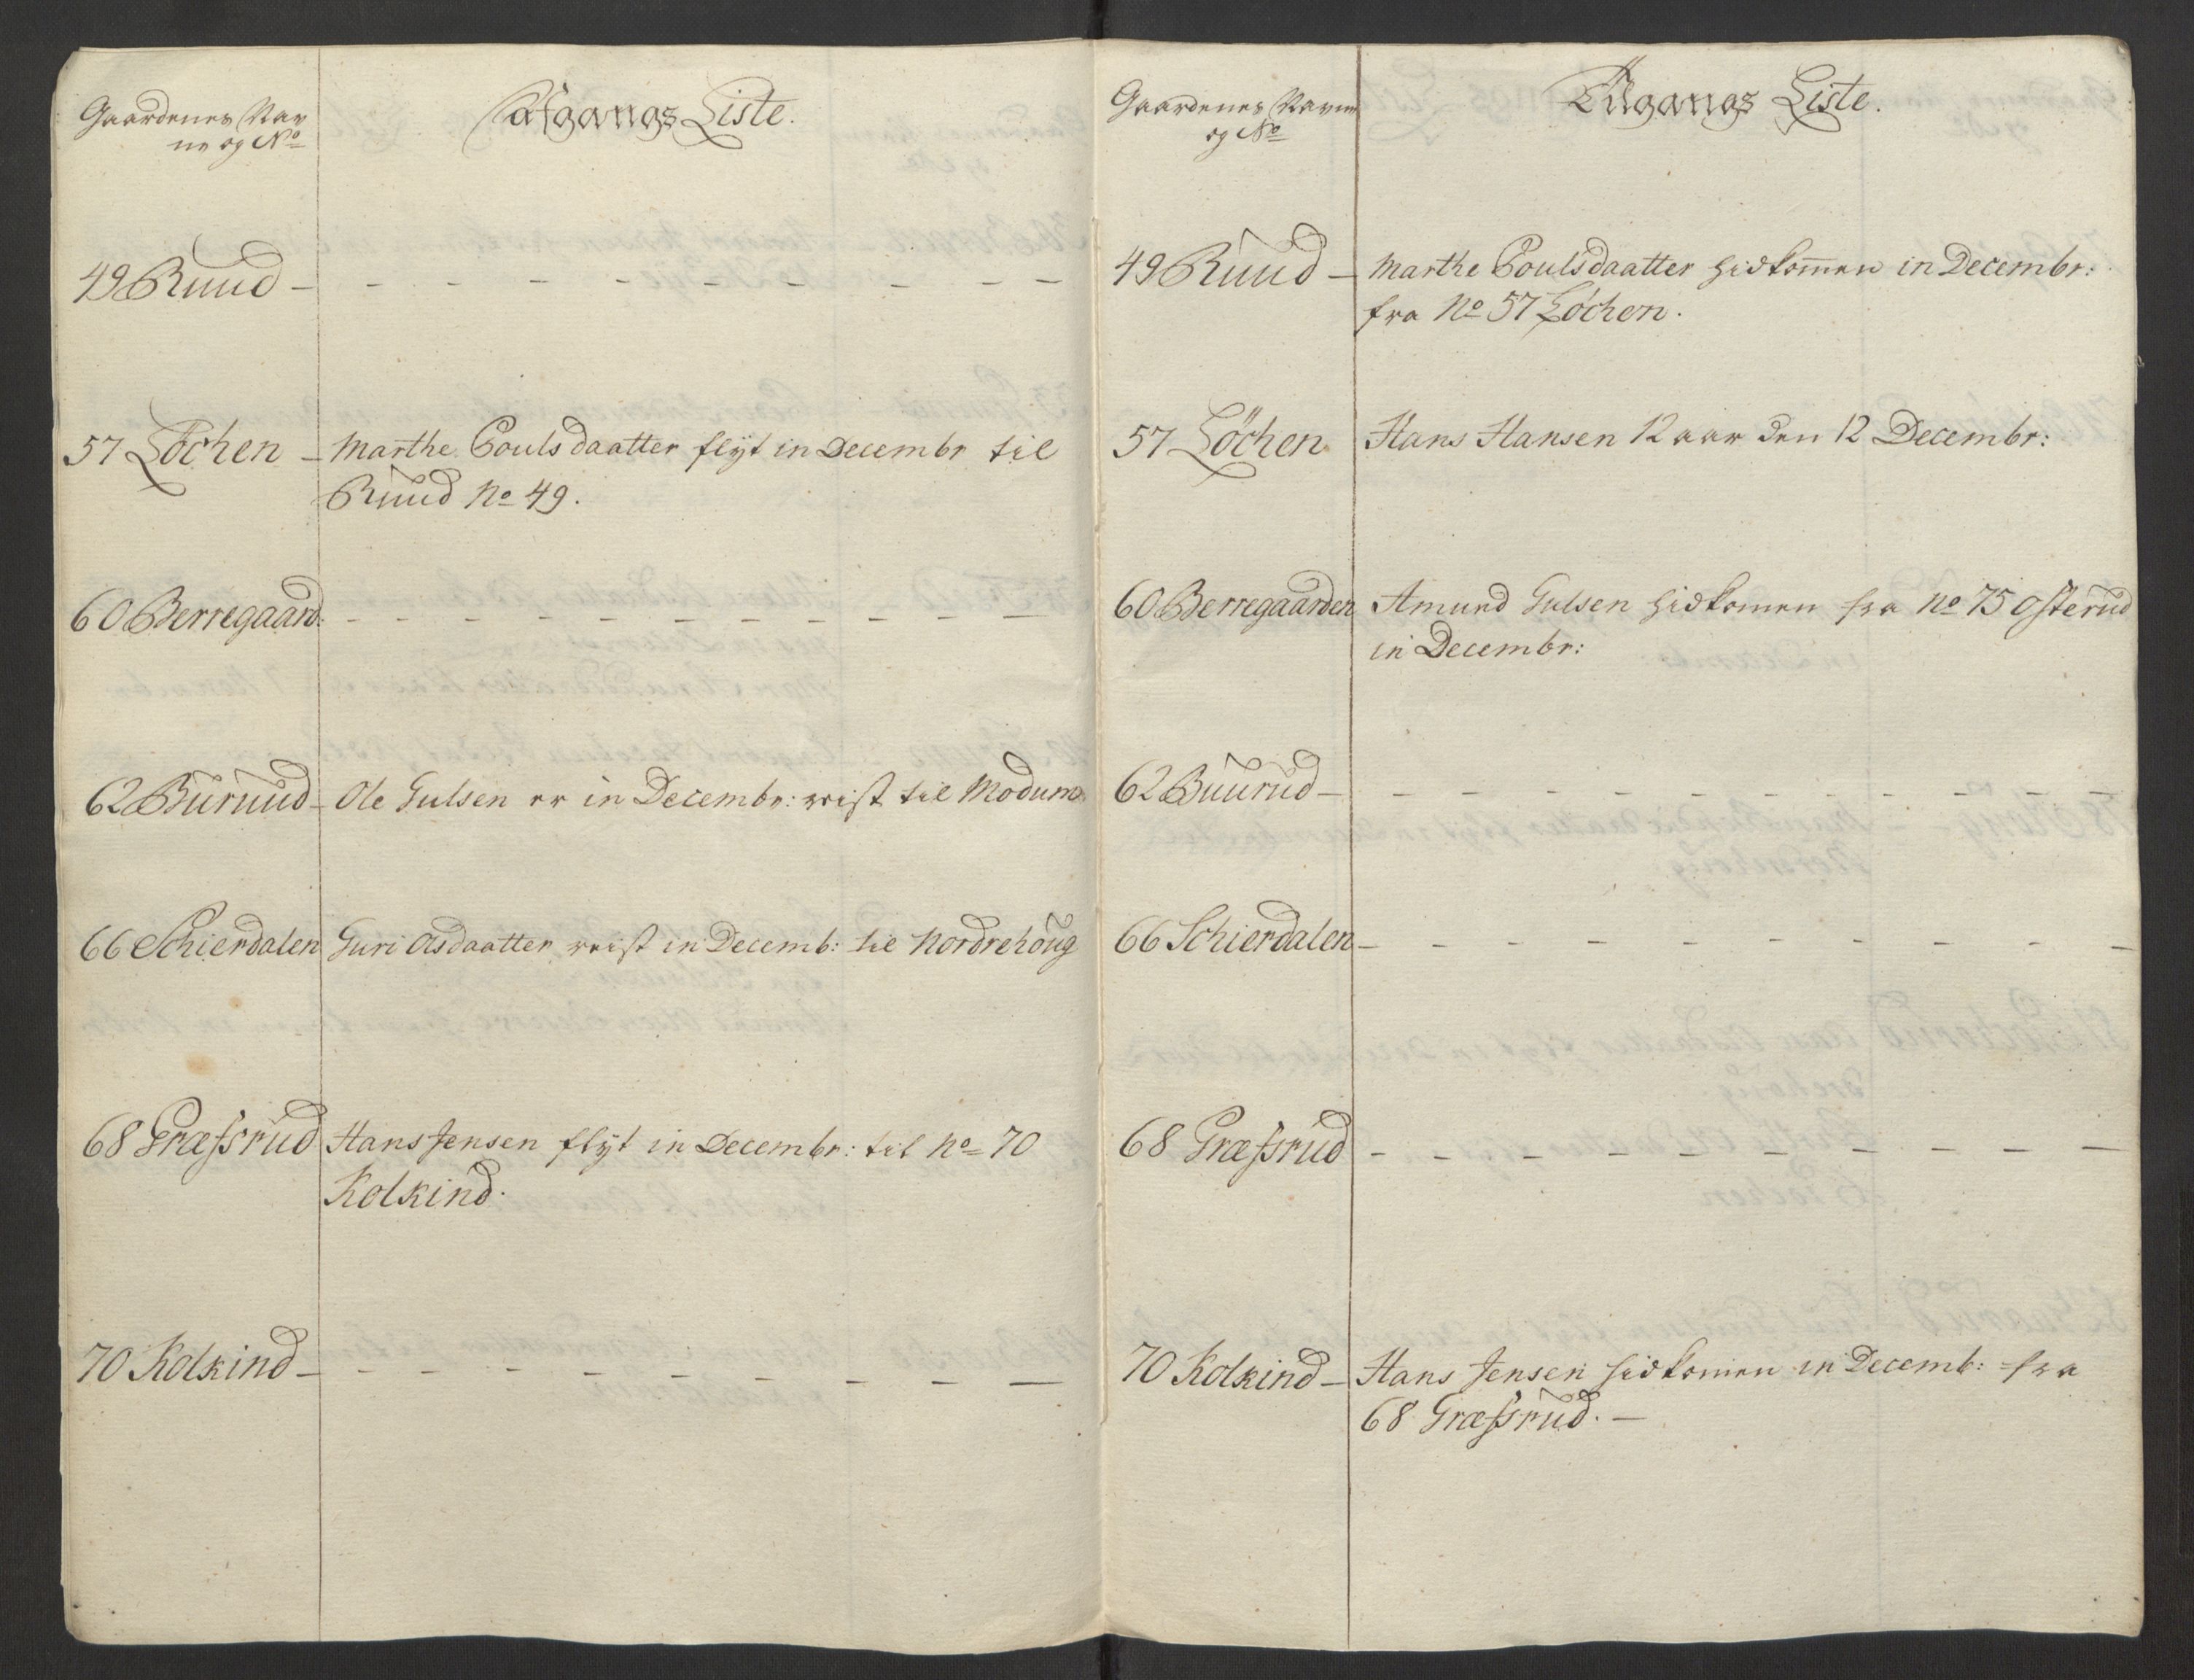 Gaardenes Nav
ne og No
Afgangs Liste.
49 Ruud – – – – – – – – – –
57 Löchen – Marthe Poulsdaatter flÿt in Decembr til
Ruud No 49.
60 Berregaard: – – – – – – – – – –
62 Buruud – Ole Gulsen er in Decembr: reist til Modum
66 Schierdalen Guri Olsdaatter reist in Decemb: til Nordrehoug
68 Græfsrud Hans Jensen flÿt in Decembr: til No 70
Kolkind.
70 Kolkind – – – – – – – – – –
Gaardenes Navne
og No
Tilgangs Liste.
49 Ruud – Marthe Poulsdaatter hidkommen in Decembr:
fra No 57 Löchen.
57 Löchen Hans Hansen 12 aar den 12 Decembr:
60 Berregaarden Amund Gulsen hidkomen fra No 75 Osterud
in Decembr:
62 Buurud – – – – – – – – – –
66 Schierdalen – – – – – – – – – –
68 Græfsrud – – – – – – – – – –
70 Kolkind – Hans Jensen hidkomen in Decemb: fra
68 Græfsrud. –